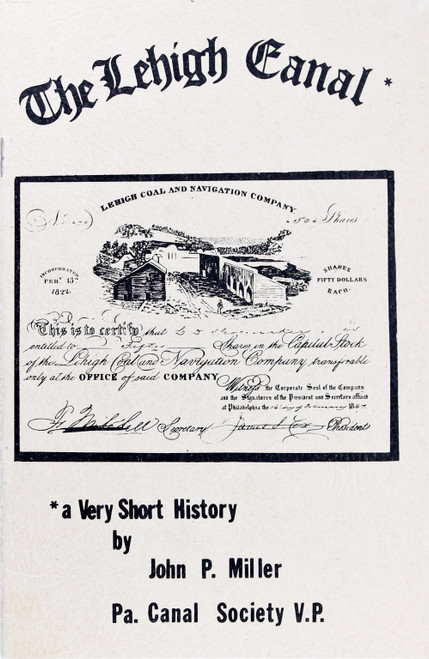 The Lehigh Canal *
LEHIGH COAL AND NAVIGATION COMPANY
No
50 Shares
INCORPORATED
FEB. 13th
1822.
SHARES
FIFTY DOLLARS
EACH.
This is to certify that
entitled to Fifty Shares in the Capital Stock
of the Lehigh Coal and Navigation Company transferable
only at the OFFICE of said COMPANY
Witness the Corporate Seal of the Company
and the Signatures of the President and Secretary affixed
at Philadelphia the
Secretary James Cox President
*a Very Short History
by
John P. Miller
Pa. Canal Society V.P.